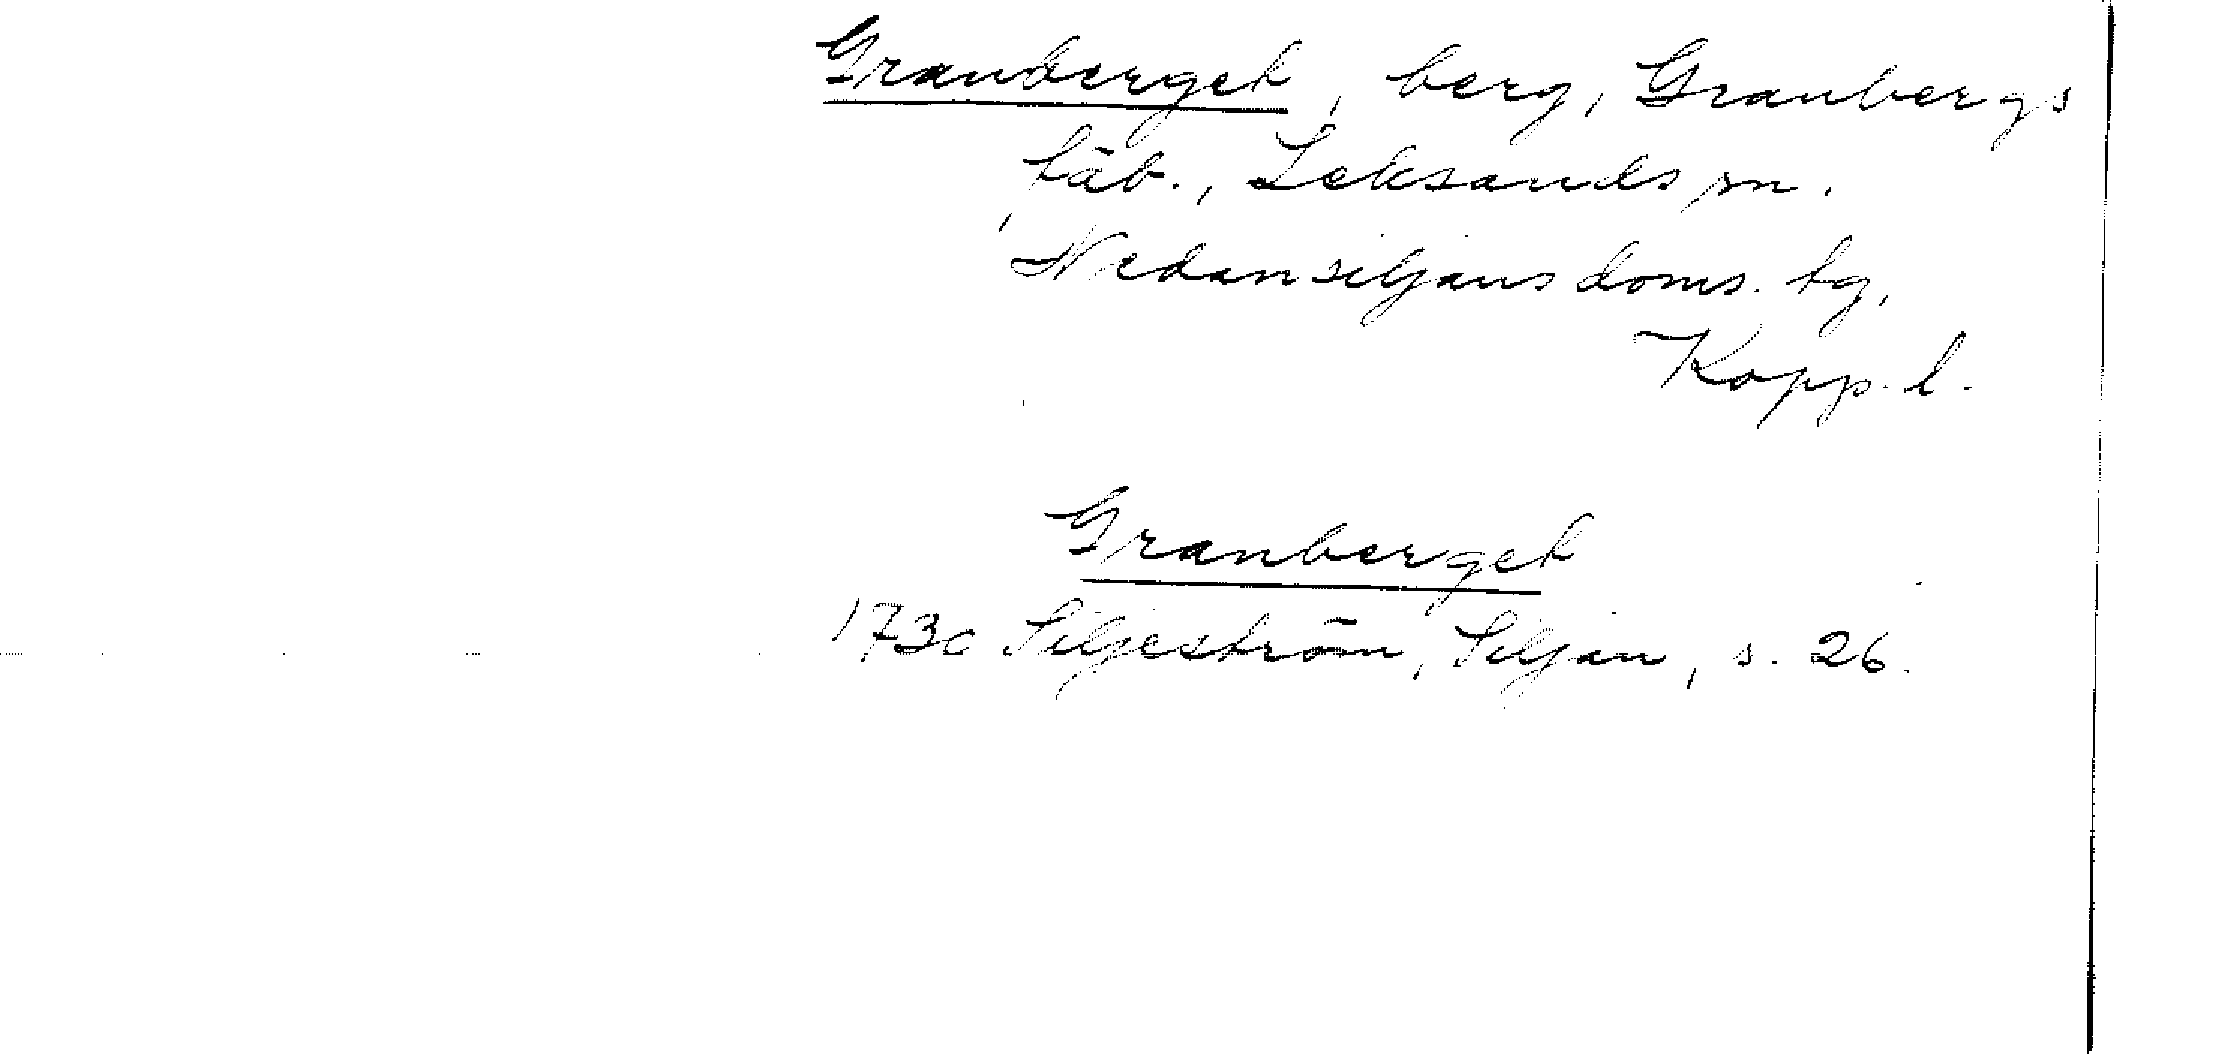 Granberget, berg, Granbergs
fäb., Leksands sn.
Nedansiljans doms. tg,
Kopp. l.
Granberget
1730 Siljeström, Siljan, s. 26.